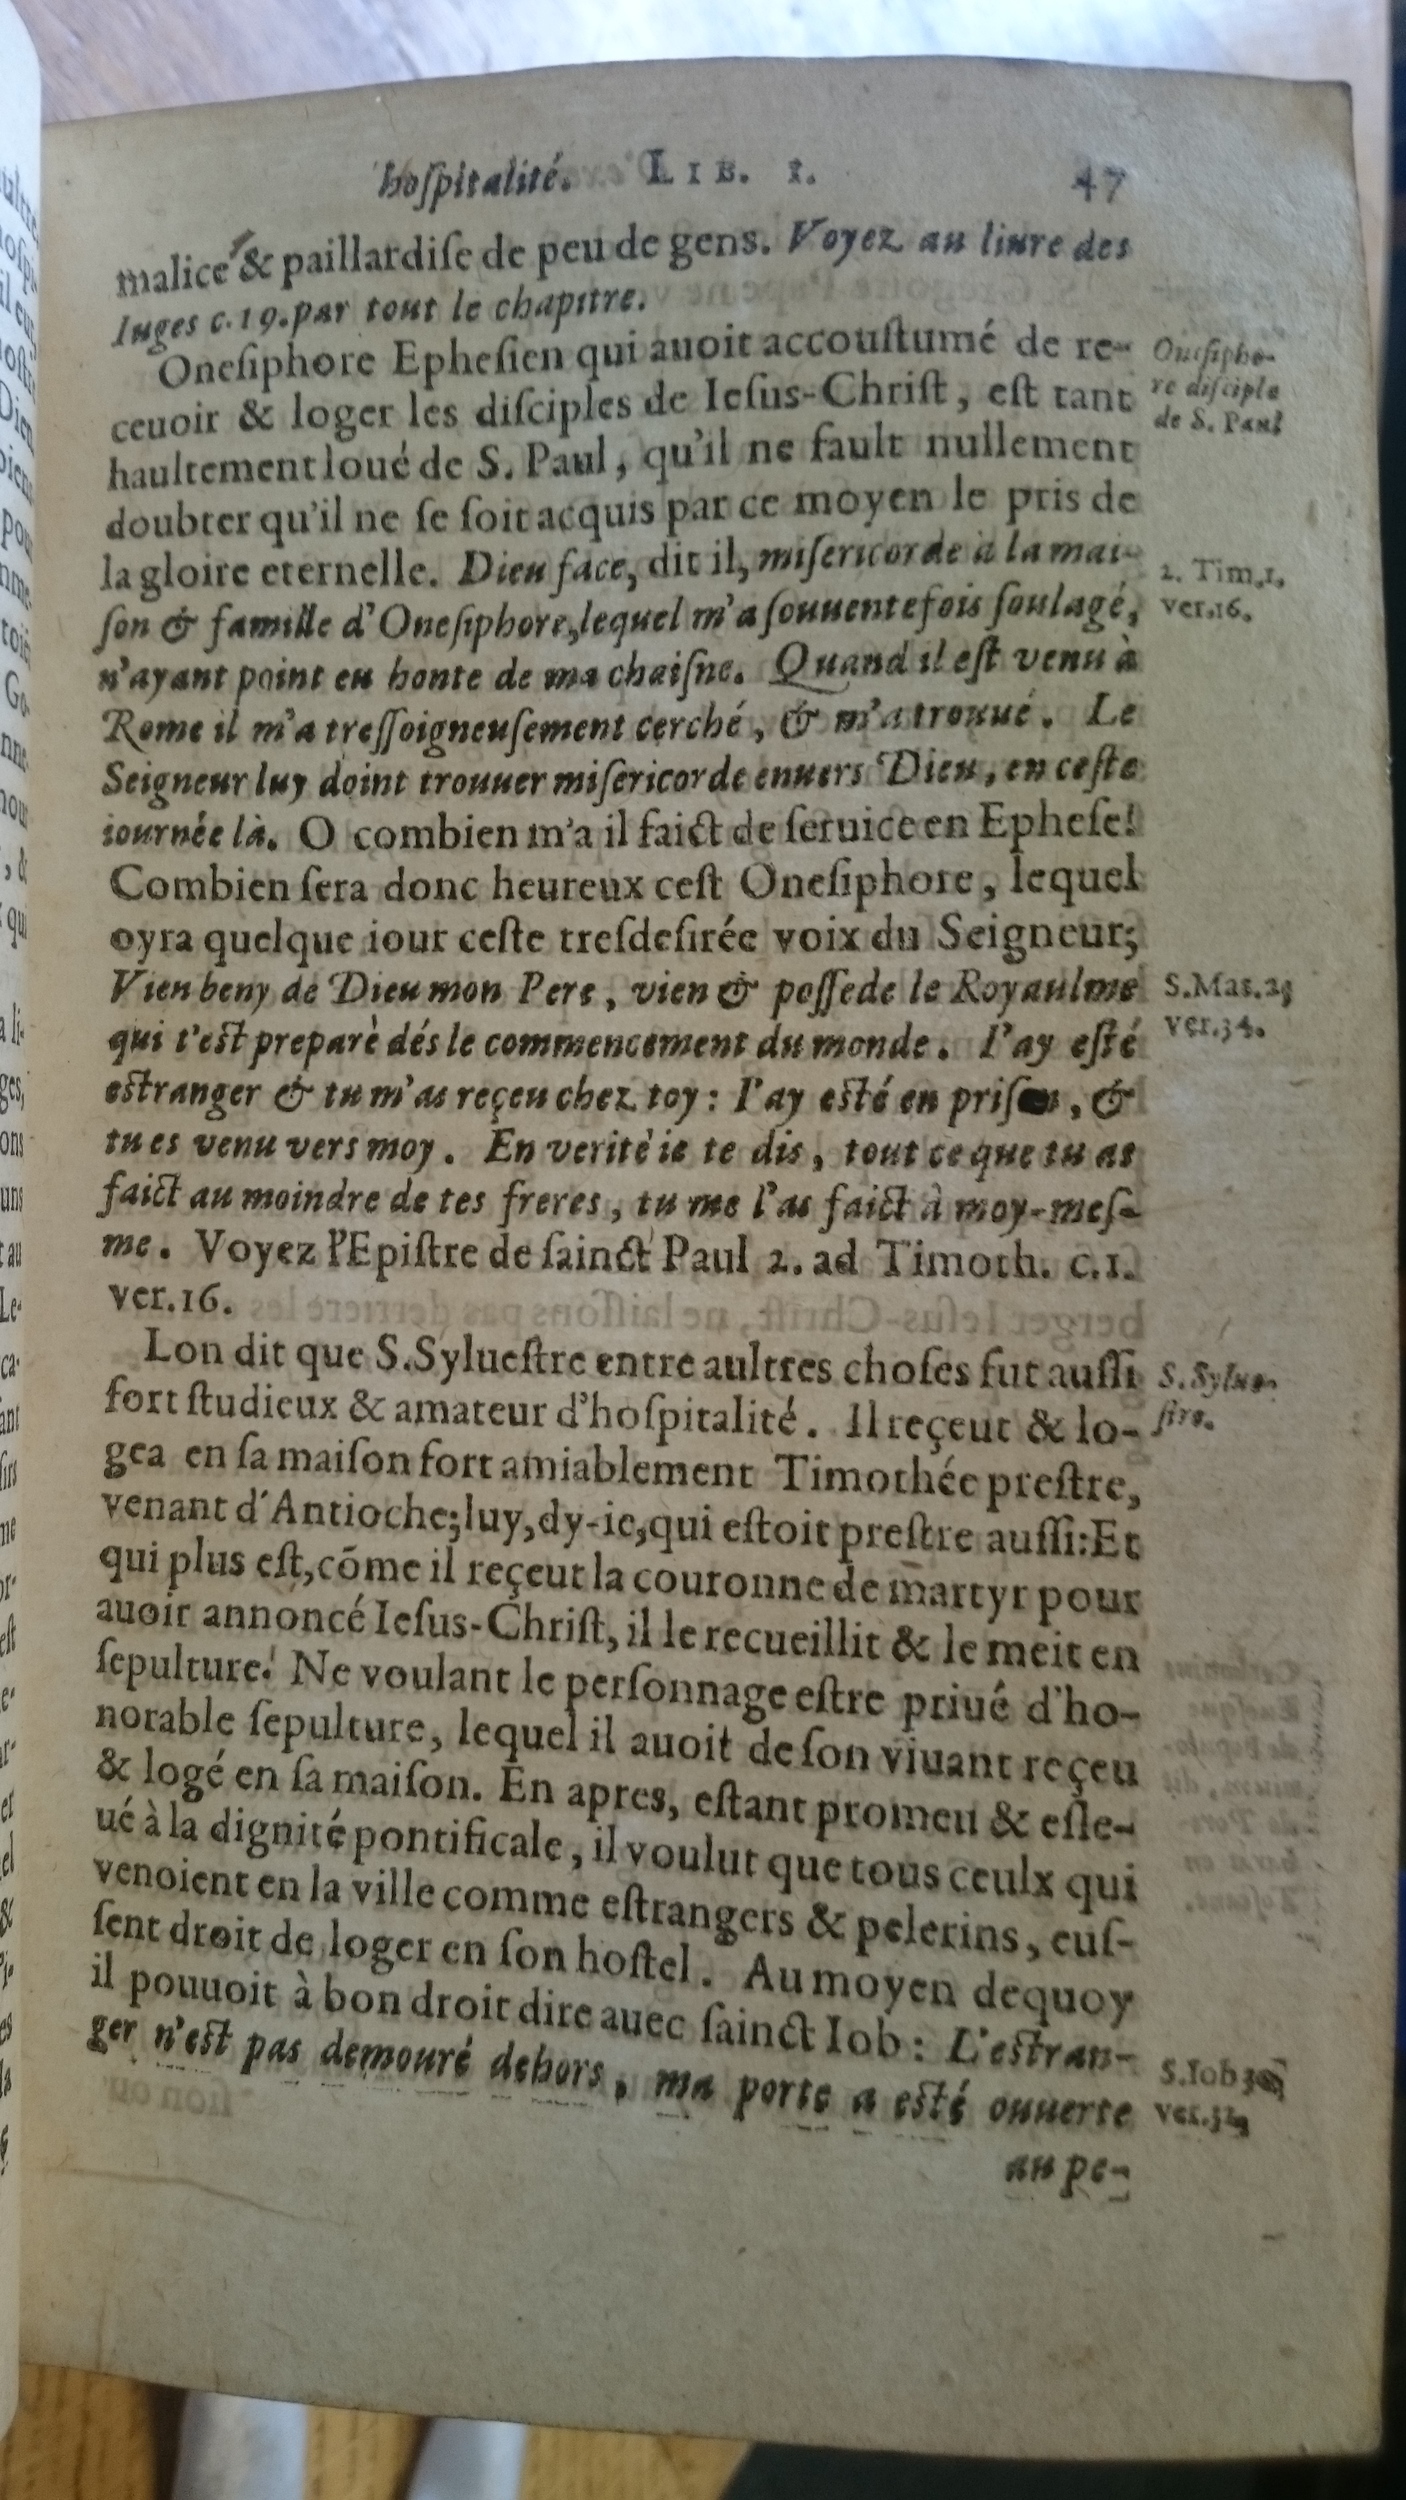 hoſpitalité. LIB. I. 47
malice & paillardiſe de peu de gens. Voyez au liure des
Iuges c.19.par tout le chapitre.
Oneſiphore Epheſien qui auoit accouſtumé de re-
ceuoir & loger les diſciples de Ieſus-Chriſt, eſt tant
haultement loué de S. Paul, qu'il ne fault nullement
doubter qu'il ne ſe ſoit acquis par ce moyen le pris de
la gloire eternelle. Dieu face, dit il, miſericorde à la mai-
ſon & famille d'Oneſiphore,lequel m'a ſouuentefois ſoulagé,
n'ayant point eu honte de ma chaiſne. Quand il eſt venu à
Rome il m'a treſſoigneuſement cerché, & m'a trouué. Le
Seigneur luy doint trouuer miſericorde enuers Dieu, en ceſte
iournée là. O combien m'a il faict de ſeruice en Epheſe!
Combien ſera donc heureux ceſt Oneſiphore, lequel
oyra quelque iour ceſte treſdeſirée voix du Seigneur;
Vien beny de Dieu mon Pere, vien & poſſede le Royaulme
qui t'eſt preparè dés le commencement du monde. I'ay eſté
eſtranger & tu m'as reçeu chez toy: I'ay eſté en priſon, &
tu es venu vers moy. En verité ie te dis, tout ce que tu as
faict au moindre de tes freres, tu me l'as faict à moy-meſ-
me. Voyez l'Epiſtre de ſainct Paul 2. ad Timoth. c.1.
ver.16.
Lon dit que S.Sylueſtre entre aultres choſes fut auſſi
fort ſtudieux & amateur d'hoſpitalité. Il reçeut & lo-
gea en ſa maiſon fort amiablement Timothée preſtre,
venant d'Antioche;luy,dy-ie,qui eſtoit preſtre auſſi:Et
qui plus eſt,cõme il reçeut la couronne de martyr pour
auoir annoncé Ieſus-Chriſt, il le recueillit & le meit en
ſepulture. Ne voulant le perſonnage eſtre priué d'ho-
norable ſepulture, lequel il auoit de ſon viuant reçeu
& logé en ſa maiſon. En apres, eſtant promeu & eſle-
ué à la dignité pontificale, il voulut que tous ceulx qui
venoient en la ville comme eſtrangers & pelerins, euſ-
ſent droit de loger en ſon hoſtel. Au moyen dequoy
il pouuoit à bon droit dire auec ſainct Iob: L'eſtran-
ger n'eſt pas demouré dehors, ma porte a eſté ouuerte
au pe-
Oneſipho-
re diſciple
de S. Paul
2. Tim.1.
ver.16.
S.Mat.25
ver.34.
S. Sylue-
ſtre.
S.Iob